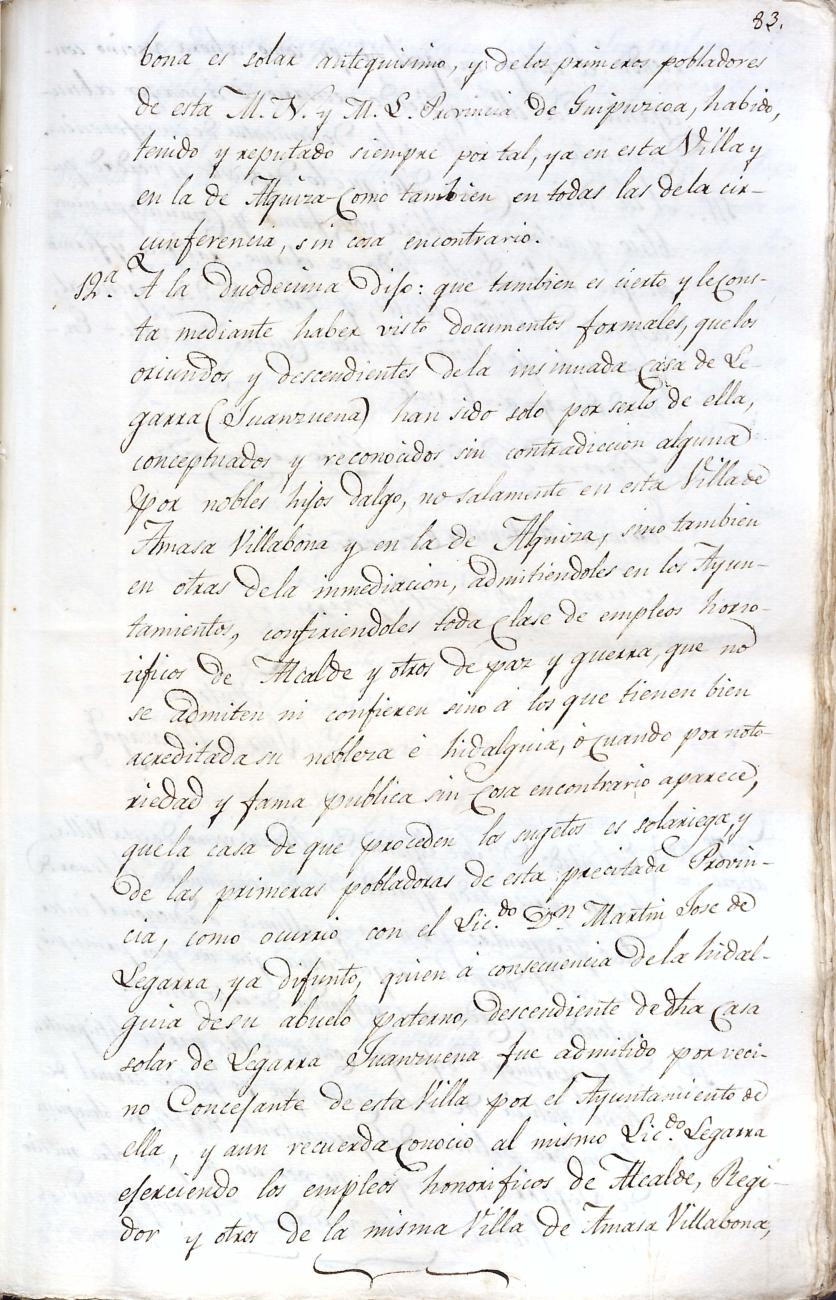 83.
bona es solar antequisimo, y delos primeros pobladores
de esta M. N. y M. L. Provincia de Guipuzcoa, habido,
tenido y reputado siempre por tal, ya en esta Villa y
en la de Alquiza como tambien en todas las dela cir-
cunferencia, sin cosa encontrario.
12ª A la duodecima dijo: que tambien es cierto y le cons-
ta mediante haber visto documentos formales, que los
oriundos y descendientes dela insinuada Casa de Le-
garra (Juanzuena) han sido solo por serlo de ella,
conceptuados y reconocidos sin contradiccion alguna
por nobles hijos dalgo, no salamente en esta Villa de
Amasa Villabona y en la de Alquiza, sino tambien
en otras dela inmediacion, admitiendoles en los Ayun-
tamientos, confiriendoles toda Clase de empleos horro-
rificos de Alcalde y otros de paz y guerra, que no
se admiten ni confieren sino á los que tienen bien
acreditada su nobleza é hidalguia, ó Cuando por noto-
riedad y fama publica sin Cosa encontrario aparece,
que la casa de que proceden los sugetos es solariega, y
de las primeras pobladoras de esta precitada Provin-
cia, como ocurrio con el Lic.do Dn. Martin Jose de
Legarra, ya difunto, quien á consecuencia dela hidal-
guia de su abuelo paterno, descendiente de dha Casa
solar de Legarra Juanzuena fue admitido por veci-
no Concejante de esta Villa por el Ayuntamiento de
ella, y aun recuerda Conocio al mismo Lic.do Legarra
ejerciendo los empleos honorificos de Alcalde, Regi-
dor y otros de la misma Villa de Amasa Villabona,